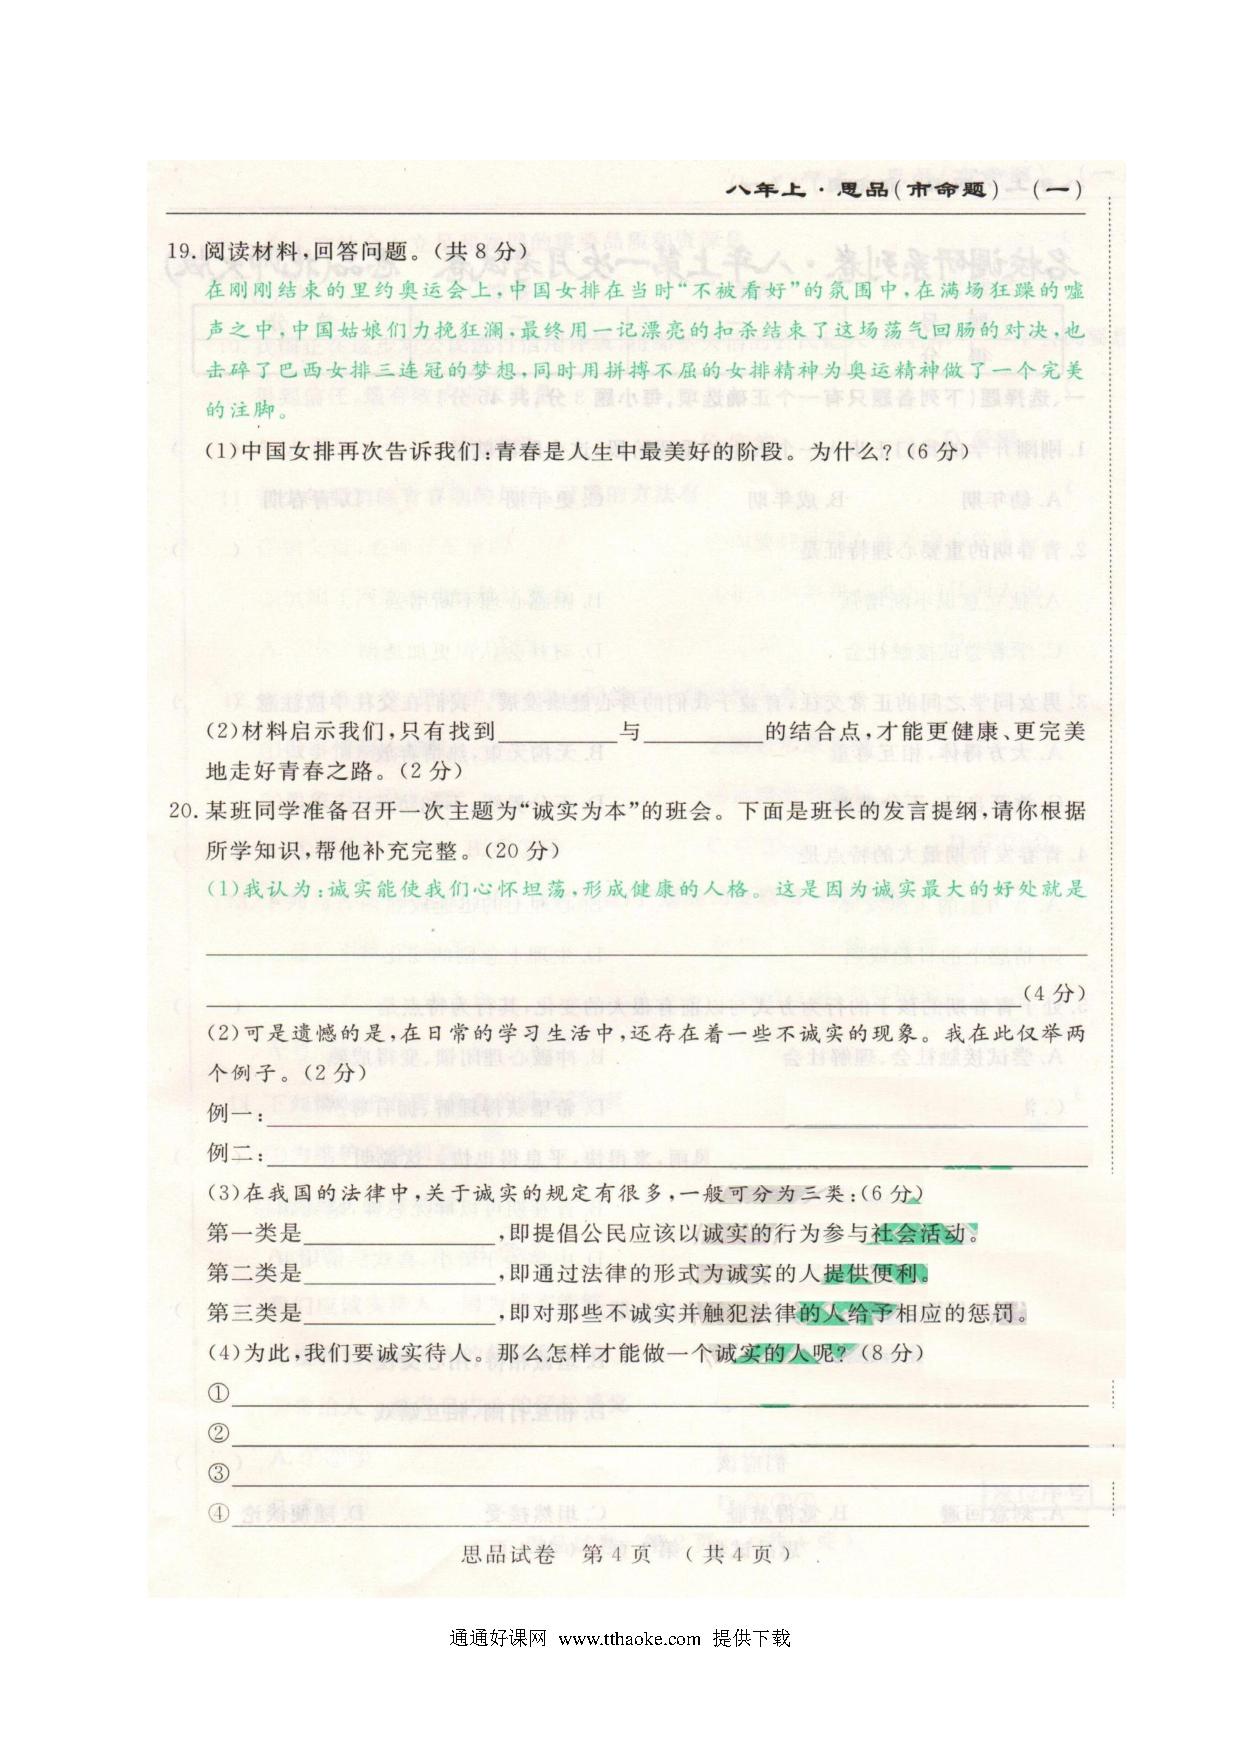 八年上·思品(市命题) (一)
19. 阅读材料,回答问题。(共 8 分)
在刚刚结束的里约奥运会上,中国女排在当时“不被看好”的氛围中,在满场狂躁的嘘
声之中,中国姑娘们力挽狂澜,最终用一记漂亮的扣杀结束了这场荡气回肠的对决,也
击碎了巴西女排三连冠的梦想,同时用拼搏不屈的女排精神为奥运精神做了一个完美
的注脚。
(1)中国女排再次告诉我们:青春是人生中最美好的阶段。为什么?(6 分)
(2)材料启示我们,只有找到__________与__________的结合点,才能更健康、更完美
地走好青春之路。(2 分)
20. 某班同学准备召开一次主题为“诚实为本”的班会。下面是班长的发言提纲,请你根据
所学知识,帮他补充完整。(20 分)
(1)我认为:诚实能使我们心怀坦荡,形成健康的人格。这是因为诚实最大的好处就是
(4 分)
(2)可是遗憾的是,在日常的学习生活中,还存在着一些不诚实的现象。我在此仅举两
个例子。(2 分)
例一:
例二:
(3)在我国的法律中,关于诚实的规定有很多,一般可分为三类:(6 分)
第一类是________________,即提倡公民应该以诚实的行为参与社会活动。
第二类是________________,即通过法律的形式为诚实的人提供便利。
第三类是________________,即对那些不诚实并触犯法律的人给予相应的惩罚。
(4)为此,我们要诚实待人。那么怎样才能做一个诚实的人呢?(8 分)
①
②
③
④
思品试卷 第 4 页 (共 4 页)
通通好课网 www.tthaoke.com 提供下载